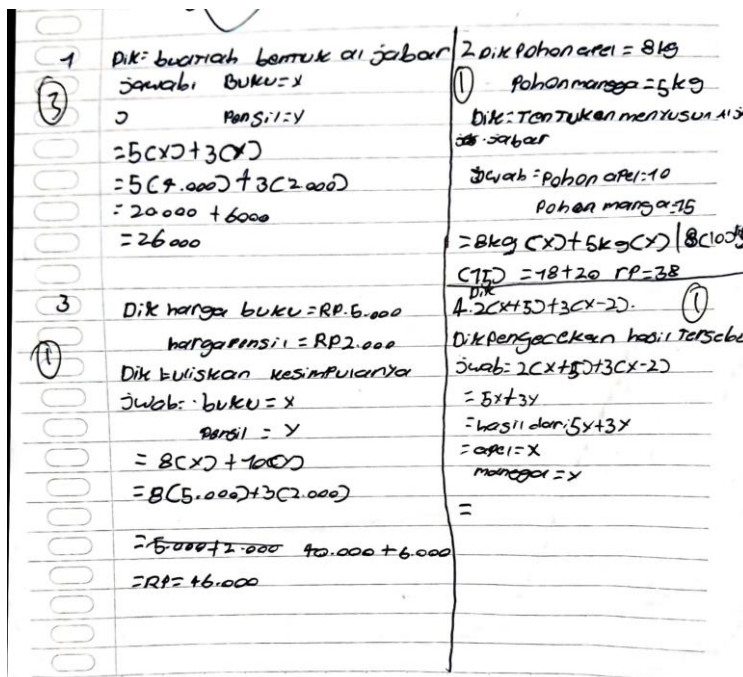 1 Dik= buatlah bentuk al jabar
jawab: Buku=x
③
Ɔ Pensil=y
=5(x)+3(x)
=5(4.000)+3(2.000)
=20000 +6000
=26000
3 Dik harga buku =RP.5.000
harga pensil = RP2.000
①
Dik tuliskan kesimpulanya
jwab: buku = x
pensil = y
= 8(x) +
=8(5.000)+3(2.000)
=5.000+2.000 40.000+6.000
=RP= 46.000
2 Dik Pohon apel = 8kg
① Pohon mangga =5kg
Dik: TenTukan menyusun Al j
jabar
Jwab = Pohon apel=10
Pohon manga=15
=8kg (x)+5kg(x) | 8(10)
(15) =18+20 rp=38
Dik
4.2(x+5)+3(x-2). ①
Dik pengecekan hasil Terseb
jwab= 2(x+5)+3(x-2)
= 5x+3y
=hasil dari 5x+3y
= apel = x
mangga = y
=